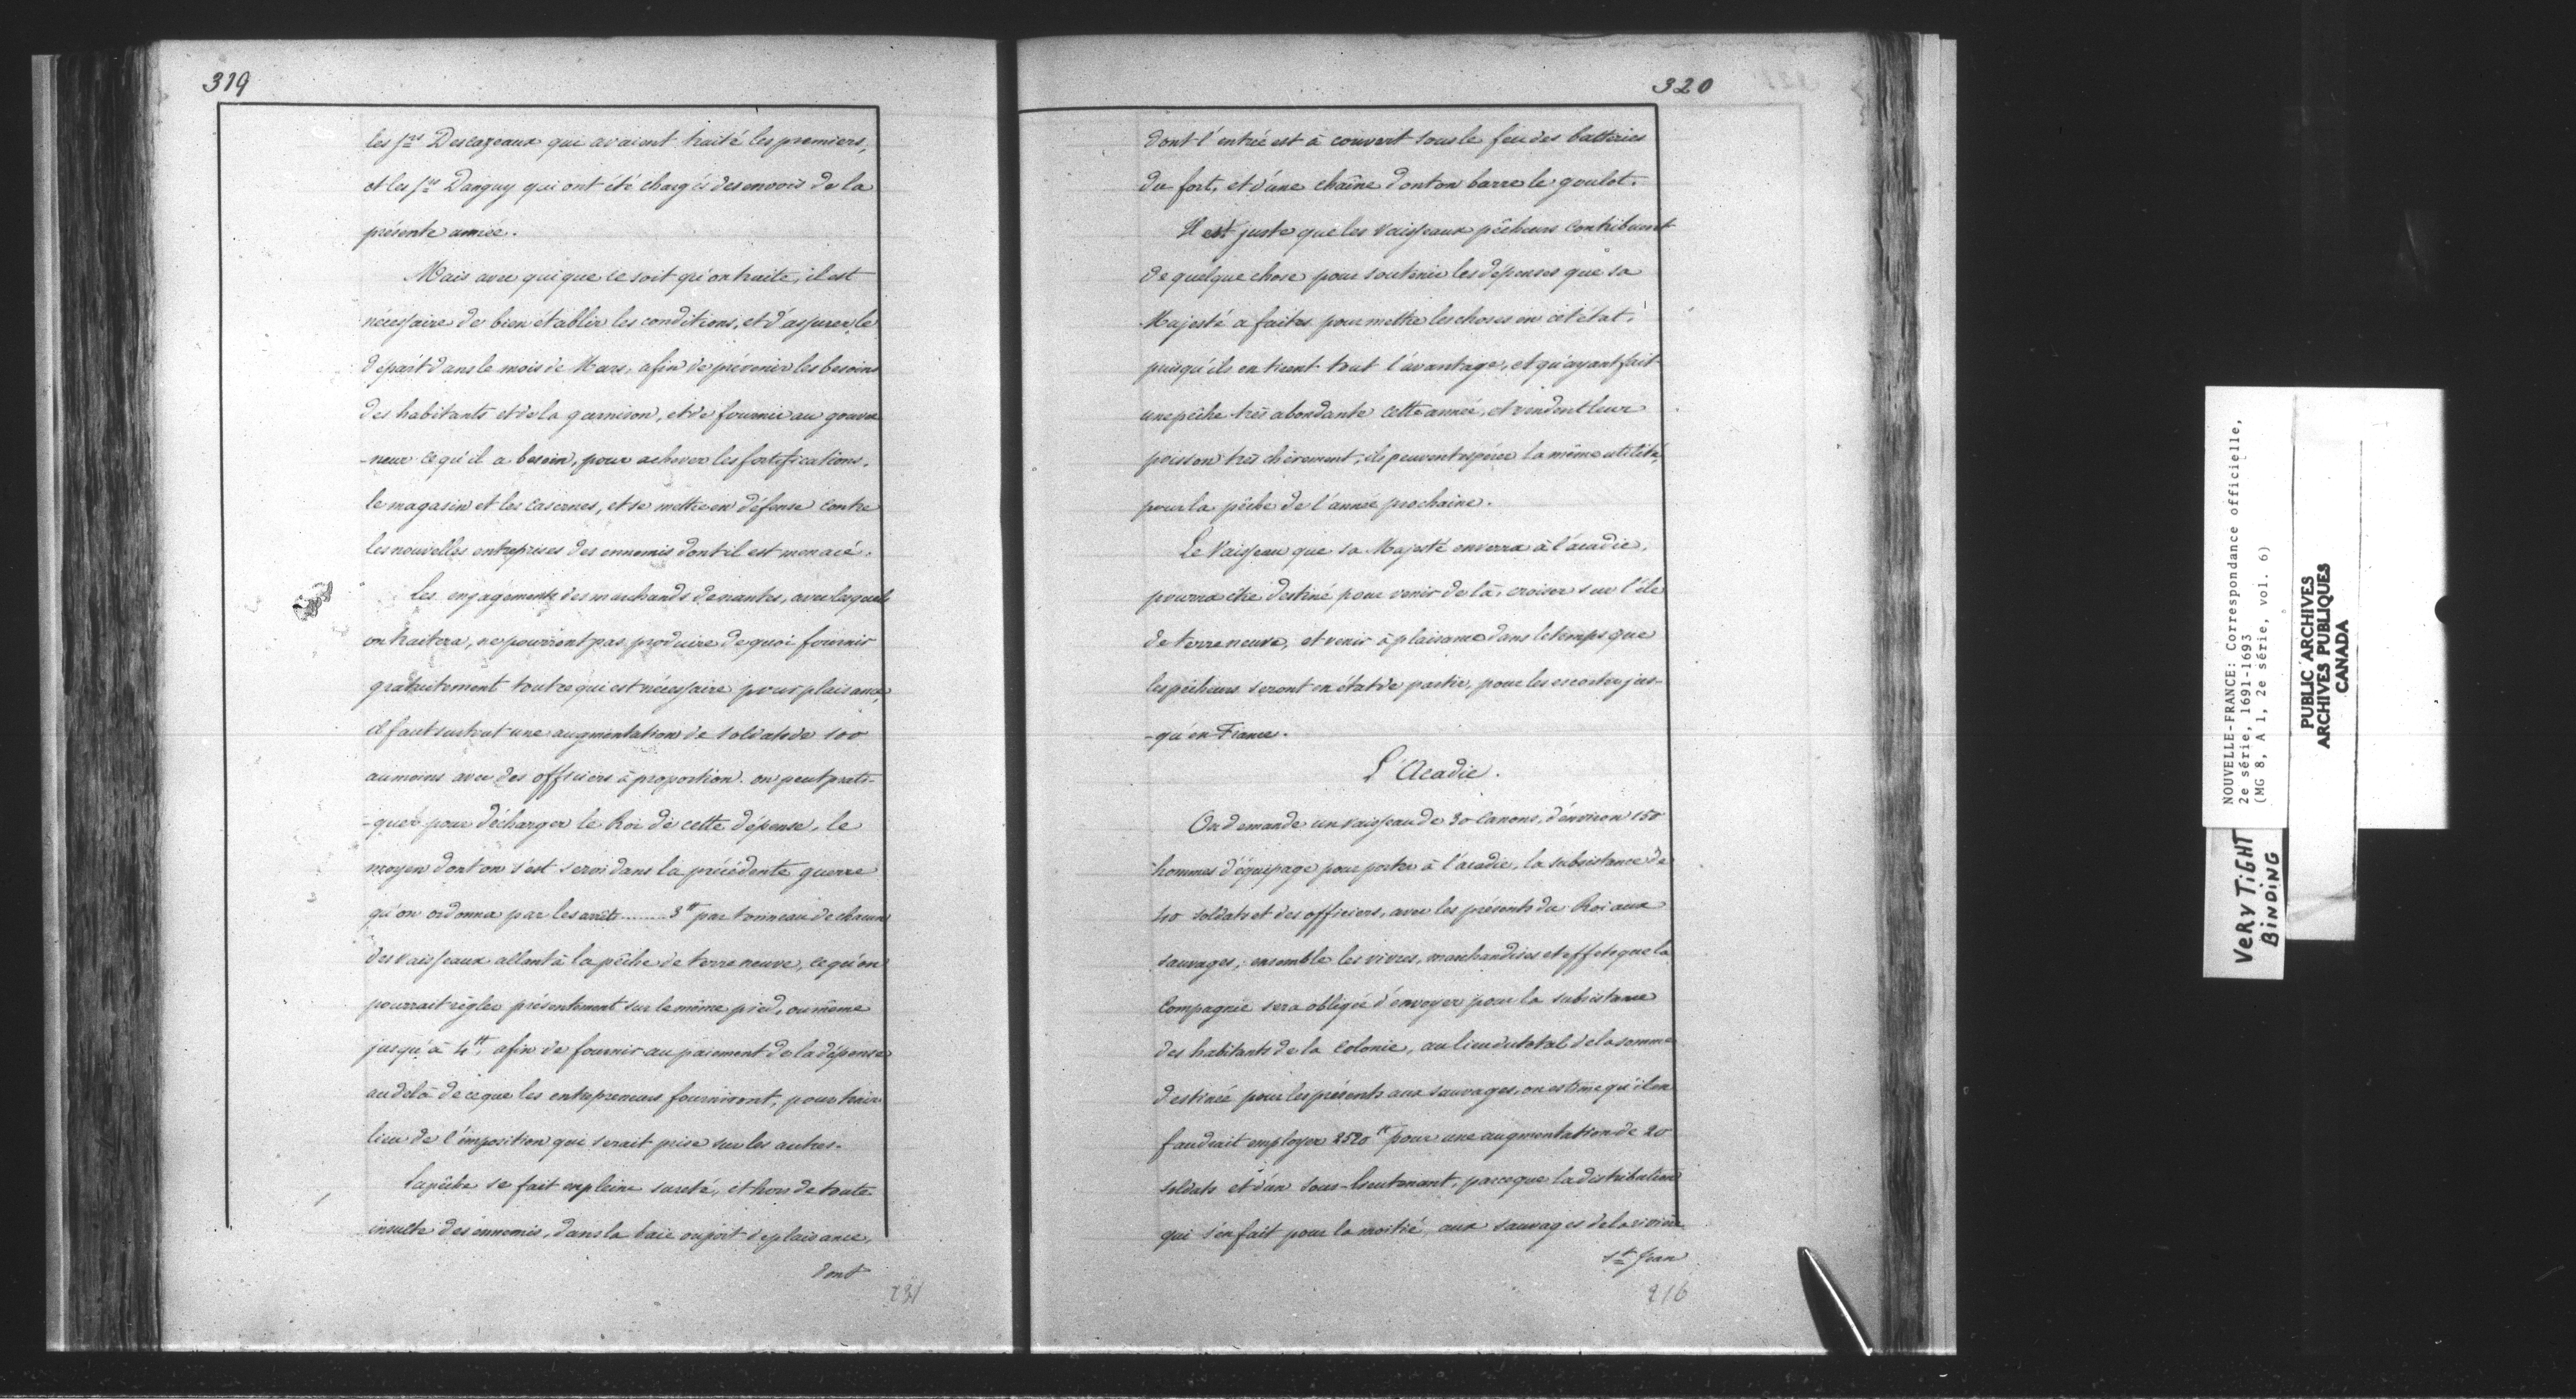 319
les Srs Descazeaux qui avaient traité les premiers,
et les Srs Danguy qui ont été chargés des envois de la
présente année.
Mais avec qui que ce soit qu'on traite, il est
nécessaire de bien établir les conditions, et d'assurer le
départ dans le mois de Mars, afin de prévenir les besoins
des habitants et de la garnison, et de fournir au gouver
-neur ce qu'il a besoin, pour achever les fortifications,
le magasin et les casernes, et se mettre en défense contre
les nouvelles entreprises des ennemis dont il est menacé.
Les engagements des marchands de nantes, avec lesquels
on traitera, ne pourront pas produire de quoi fournir
gratuitement tout ce qui est nécessaire pour plaisance,
il faut surtout une augmentation de soldats de 100
au moins avec des officiers à proportion. on peut prati-
-quer pour décharger le Roi de cette dépense, le
moyen dont on s'est servi dans la précédente guerre
qu'on ordonna par les arrêts ........ 3tt par tonneau de chacun
des vaisseaux allant à la pêche de terre neuve, ce qu'on
pourrait régler présentement sur le même pied, ou même
jusqu'à 4tt, afin de fournir au paiement de la dépense
au delà de ce que les entrepreneurs fourniront, pour tenir
lieu de l'imposition qui serait prise sur les autres.
La pêche se fait en pleine sureté, et hors de toute
insulte des ennemis, dans la baie ou port de plaisance,
dont
231
320
dont l'entrée est à couvert sous le feu des batteries
du fort, et d'une chaîne dont on barre le goulot.
Il est juste que les vaisseaux pêcheurs contribuent
de quelque chose pour soutenir les dépenses que sa
Majesté a faites pour mettre les choses en cet état,
puisqu'ils en tirent tout l'avantage, et qu'ayant fait
une pêche très abondante cette année, et vendent leur
poisson très chèrement, ils peuvent espérer la même utilité,
pour la pêche de l'année prochaine.
Le Vaisseau que sa Majesté enverra à l'acadie,
pourra être destiné pour venir de là, croiser sur l'île
de terre neuve, et venir à plaisance dans le temps que
les pêcheurs seront en état de partir, pour les escorter jus-
-qu'en France.
L'Acadie.
On demande un vaisseau de 30 Canons, d'environ 150
hommes d'équipage pour porter à l'acadie, la subsistance de
40 soldats et des officiers, avec les présents du Roi aux
sauvages; ensemble les vivres, marchandises et effets que la
Compagnie sera obligée d'envoyer pour la subsistance
des habitants de la Colonie, au lieu du total de la somme
destinée pour les présents aux sauvages, on estime qu'il en
faudrait employer 2520tt pour une augmentation de 20
soldats et d'un sous-lieutenant, parceque la distribution
qui s'en fait pour la moitié, aux sauvages de la rivière
St Jean
216
NOUVELLE-FRANCE: Correspondance officielle,
2e série, 1691-1693
(MG 8, A 1, 2e série, vol. 6)
PUBLIC ARCHIVES
ARCHIVES PUBLIQUES
CANADA
VERY TIGHT
BINDING